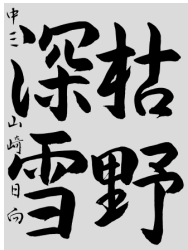 枯野
深雪
中三 山崎日向